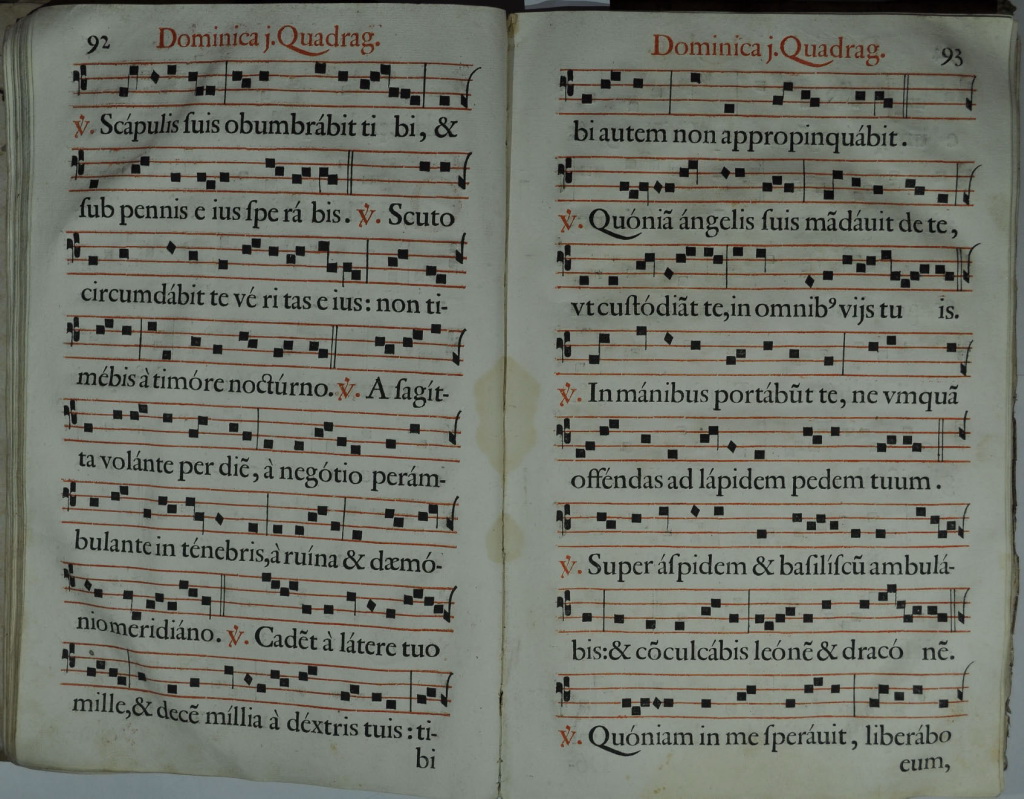 92
Dominica j. Quadrag.
℣. Scápulis ſuis obumbrábit ti bi, &
ſub pennis e ius ſpe rá bis. ℣. Scuto
circumdábit te vé ri tas e ius: non ti-
mébis à timóre noctúrno. ℣. A ſagít-
ta volánte per diẽ, à negótio perám-
bulante in ténebris, à ruína & dæmó-
nio meridiáno. ℣. Cadẽt à látere tuo
mille, & decẽ míllia à déxtris tuis: ti-
bi
Dominica j. Quadrag.
93
bi autem non appropinquábit.
℣. Quóniã ángelis ſuis mãdáuit de te,
vt cuſtódiãt te, in omnibꝰ vijs tu is.
℣. In mánibus portábũt te, ne vmquã
offéndas ad lápidem pedem tuum.
℣. Super áſpidem & baſilíſcũ ambulá-
bis: & cõculcábis leónẽ & dracó nẽ.
℣. Quóniam in me ſperáuit, liberábo
eum,